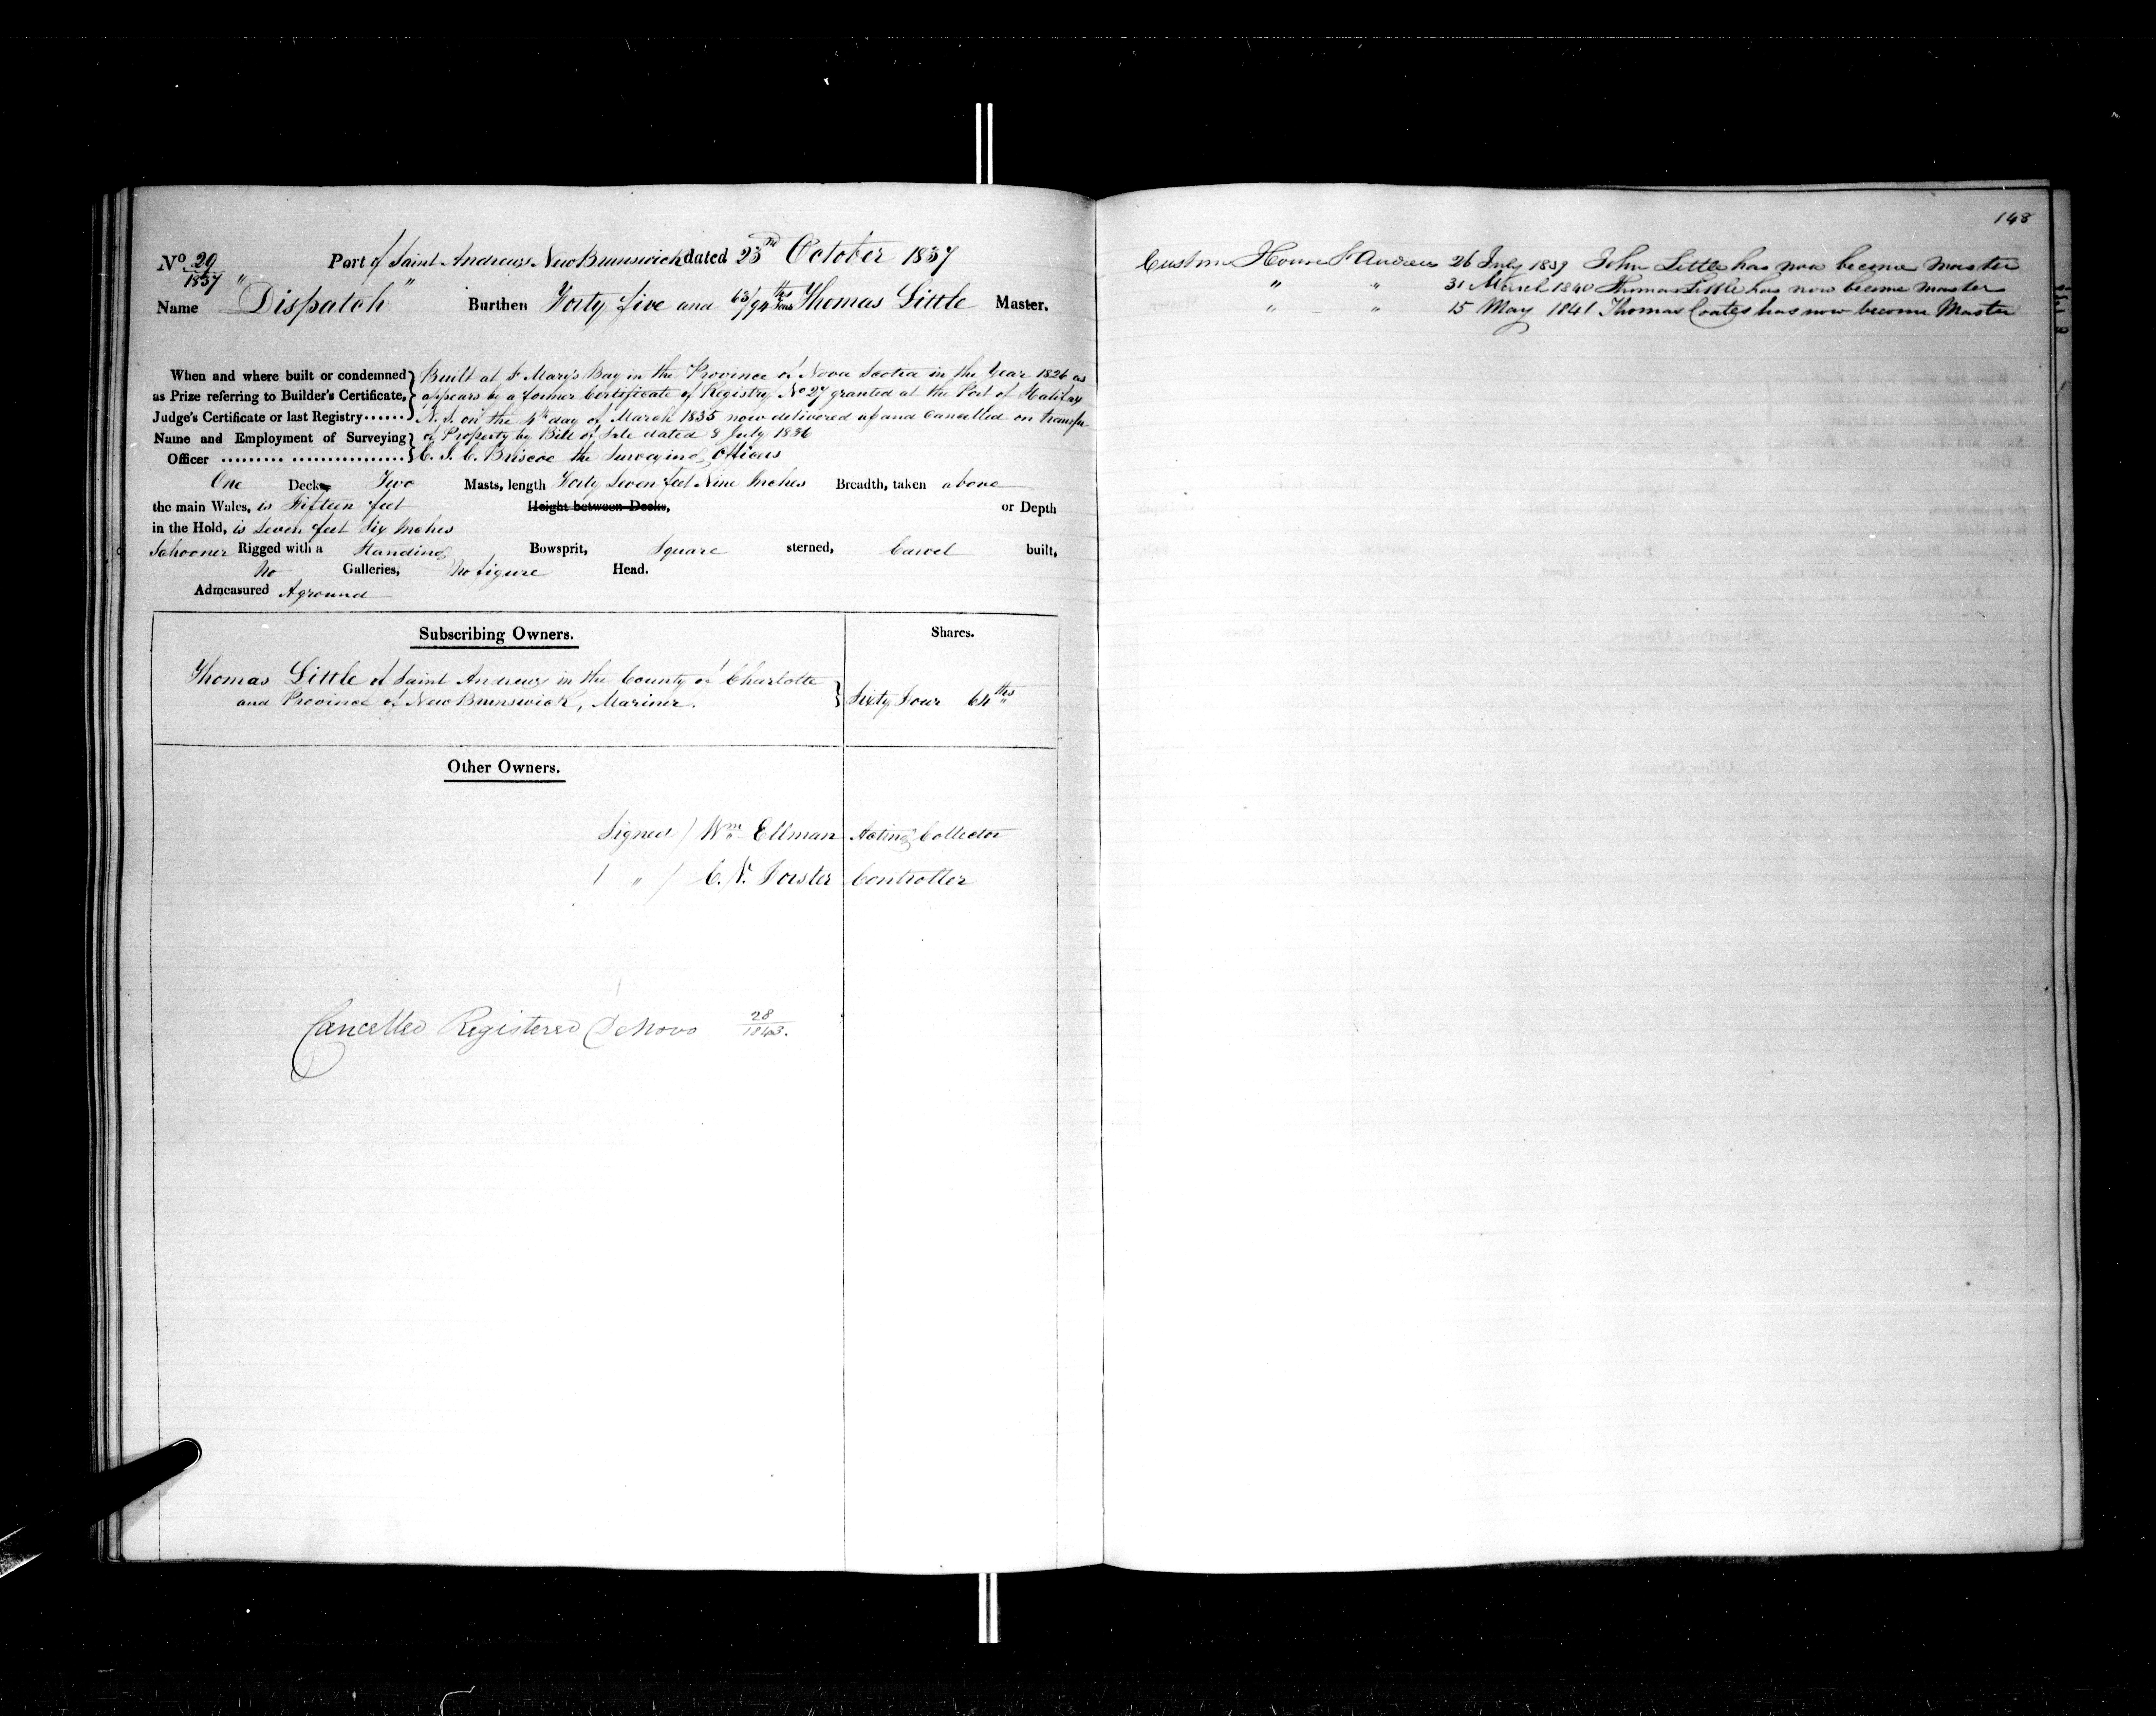 No 29/1837 Port of Saint Andrews New Brunswick dated 23rd October 1837
Name "Dispatch" Burthen Forty five and 63/94ths Tons Thomas Little Master.
When and where built or condemned } Built at St Mary's Bay in the Province of Nova Scotia in the Year 1826 as
as Prize referring to Builder's Certificate, } appears by a former Certificate of Registry No 27 granted at the Port of Halifax
Judge's Certificate or last Registry ...... } N.S. on the 4th day of March 1835 now delivered up and Cancelled on transfer
Name and Employment of Surveying } of Property by Bill of Sale dated 8 July 1836
Officer ......... ................ } C. J. C. Briscoe the Surveying Officer
One Decks Two Masts, length Forty Seven feet Nine Inches Breadth, taken above
the main Wales, is Fifteen feet Height between Decks, or Depth
in the Hold, is Seven feet Six Inches
Schooner Rigged with a Standing Bowsprit, Square sterned, Carvel built,
No Galleries, No figure Head.
Admeasured Aground
Subscribing Owners. Shares.
Thomas Little of Saint Andrews in the County of Charlotte
and Province of New Brunswick, Mariner. } Sixty Four 64ths
Other Owners.
Signed / Wm Ellman Acting Collector
/ " / C. N. Forster Controller
Cancelled Registered De Novo 28/1843.
148
Custom House St Andrews 26 July 1839 John Little has now become Master
" " 31 March 1840 Thomas Little has now become Master
" " 15 May 1841 Thomas Coates has now become Master